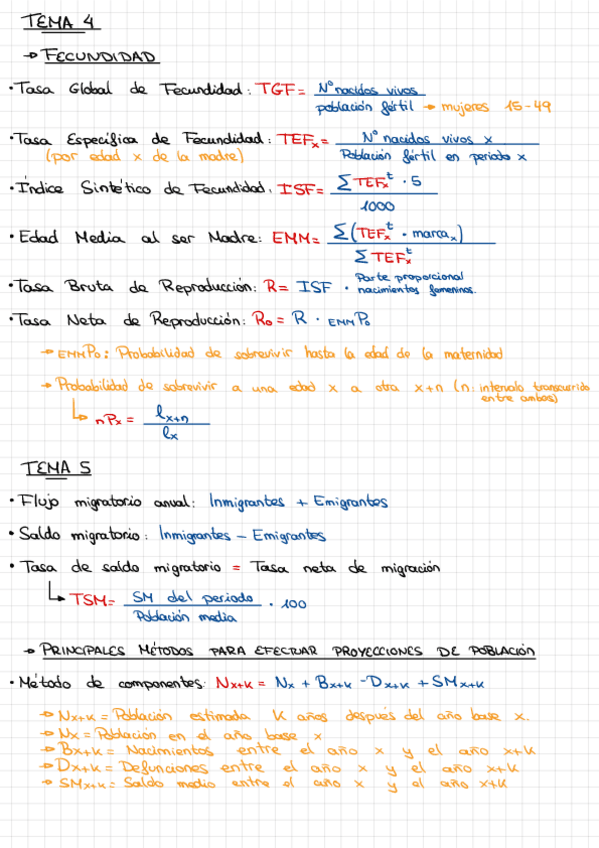 TEMA 4
→ FECUNDIDAD
· Tasa Global de Fecundidad: TGF = Nº nacidos vivos / población fértil → mujeres 15-49
· Tasa Específica de Fecundidad: TEFₓ = Nº nacidos vivos x / Población fértil en periodo x
(por edad x de la madre)
· Índice Sintético de Fecundidad: ISF = ∑ TEFₓᵗ · 5 / 1000
· Edad Media al ser Madre: EMM = ∑ (TEFₓᵗ · marcaₓ) / ∑ TEFₓᵗ
· Tasa Bruta de Reproducción: R = ISF · Parte proporcional nacimientos femeninos.
· Tasa Neta de Reproducción: R₀ = R · EMMP₀
→ EMMP₀: Probabilidad de sobrevivir hasta la edad de la maternidad
→ Probabilidad de sobrevivir a una edad x a otra x+n (n: intervalo transcurrido entre ambos)
↳ nPx = lx+n / lx
TEMA 5
· Flujo migratorio anual: Inmigrantes + Emigrantes
· Saldo migratorio: Inmigrantes - Emigrantes
· Tasa de saldo migratorio = Tasa neta de migración
↳ TSM = SM del periodo / Población media · 100
→ PRINCIPALES MÉTODOS PARA EFECTUAR PROYECCIONES DE POBLACIÓN
· Método de componentes: Nx+k = Nx + Bx+k - Dx+k + SMx+k
→ Nx+k = Población estimada K años después del año base x.
→ Nx = Población en el año base x
→ Bx+k = Nacimientos entre el año x y el año x+k
→ Dx+k = Defunciones entre el año x y el año x+k
→ SMx+k = Saldo medio entre el año x y el año x+k